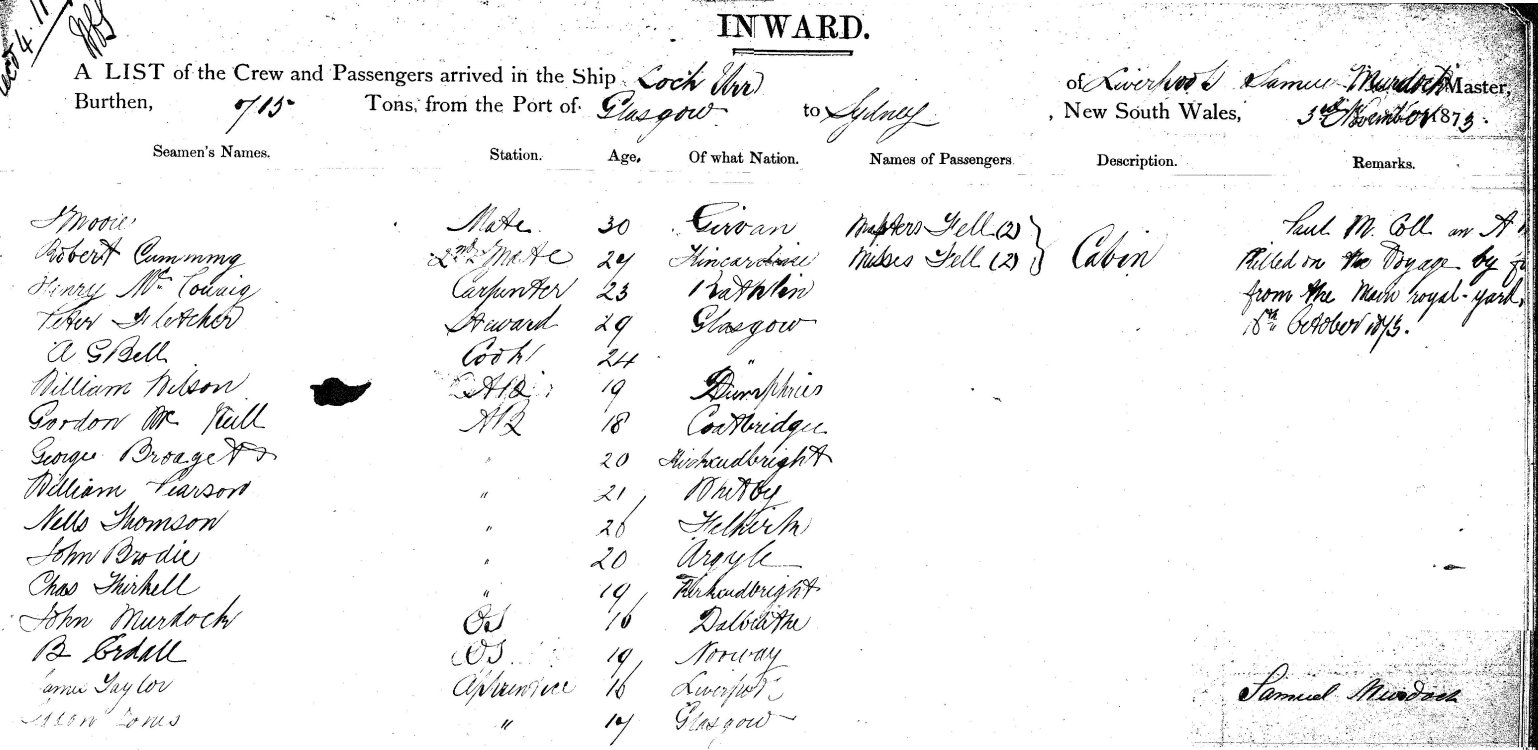 INWARD.
A LIST of the Crew and Passengers arrived in the Ship Loch Urr of Liverpool Samuel Murdoch Master,
Burthen, 715 Tons, from the Port of Glasgow to Sydney, New South Wales, 3rd November 1873.
Seamen's Names. Station. Age, Of what Nation. Names of Passengers Description. Remarks.
Mate 30 Girvan Masters Fell (2) Cabin Paul M. Coll an A
Robert Cumming 2nd Mate 27 Kincardine Misses Fell (2) Killed on the Voyage by
Henry Mc Carpenter 23 Rathlin from the Main royal-yard,
Peter Fletcher Steward 29 Glasgow October 1873.
A G Bell Cook 24 "
William Wilson AB 19 Dumphries
Gordon Mc AB 18 Coatbridge
George " 20 Kirkcudbright
William Pearson " 21 Whitby
Nells Thomson " 26 Falkirk
John Brodie " 20 Argyle
Chas Thirkell " 19 Kirkcudbright
John Murdoch OS 16 Dalbeattie
B Erdall OS 19 Norway
James Taylor Apprentice 16 Liverpool Samuel Murdoch
Jones " 17 Glasgow